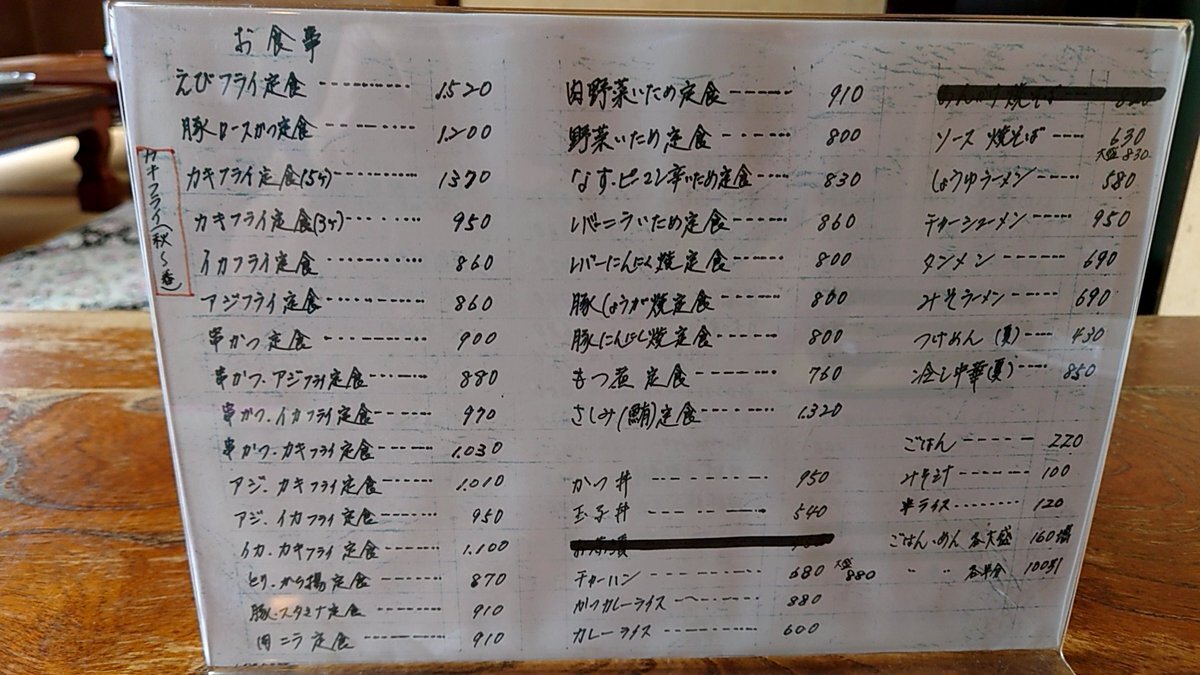 お食事
えびフライ定食 ---------- 1.520
豚ロースかつ定食 ---------- 1.200
カキフライ定食(5ケ) ------- 1370
カキフライ定食(3ケ) -------- 950
イカフライ定食 ---------- 860
アジフライ定食 ---------- 860
串かつ定食 ---------- 900
串かつ.アジフライ定食 ------- 880
串かつ.イカフライ定食 ------- 970
串かつ.カキフライ定食 ------- 1.030
アジ.カキフライ定食 ------- 1.010
アジ.イカフライ定食 ------- 950
イカ.カキフライ定食 ------- 1.100
とり.から揚定食 ------- 870
豚.スタミナ定食 ------- 910
肉ニラ定食 ---------- 910
カキフライ(秋〜春)
肉野菜いため定食 ------- 910
野菜いため定食 ------- 800
なす.ピーマン辛いため定食 ---- 830
レバーニラいため定食 ------ 860
レバーにんにく焼定食 ------ 800
豚しょうが焼定食 ------- 800
豚にんにく焼定食 ------- 800
もつ煮定食 ---------- 760
さしみ(鮪)定食 -------- 1.320
かつ丼 ---------- 950
玉子丼 ---------- 540
チャーハン ---------- 680 大盛880
かつカレーライス ---------- 880
カレーライス ---------- 600
ソース焼そば ---- 630
大盛830
しょうゆラーメン ---- 580
チャーシューメン ---- 950
タンメン ------- 690
みそラーメン ------ 690
つけめん(夏) ---- 430
冷し中華(夏) ---- 850
ごはん ------ 220
みそ汁 ------- 100
半ライス ------- 120
ごはん.めん 各大盛 160増
〃 〃 各半分 100引